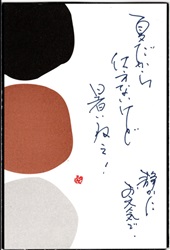 夏だから
仕方ないけど
暑いねえ!
静かに
お元気で!